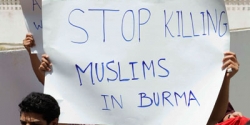 STOP KILLING
MUSLIMS
IN BURMA